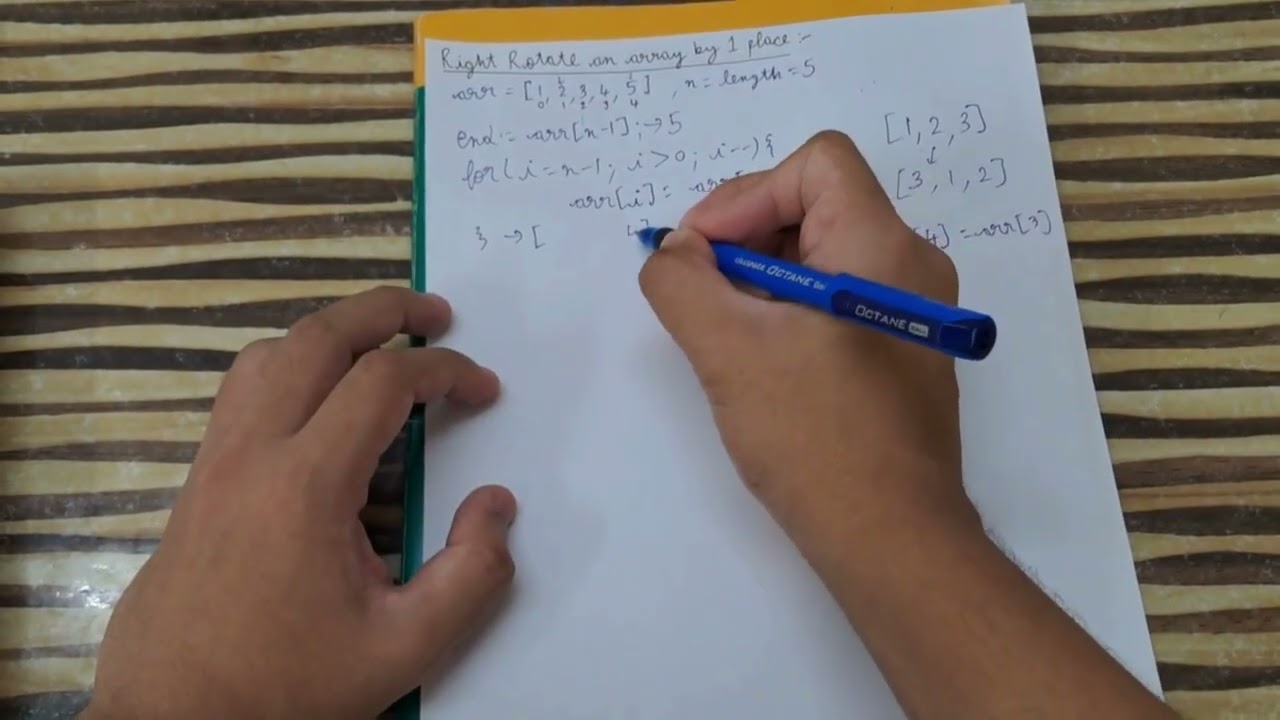 Right Rotate an array by 1 place :-
arr = [1, 2, 3, 4, 5] , n = length = 5
0 1 2 3 4
end = arr[n-1]; → 5
for( i = n-1; i > 0; i--) {
arr[i] =
} → [
[1, 2, 3]
↓
[3, 1, 2]
4] = arr[3]
OCTANE Gel
OCTANE